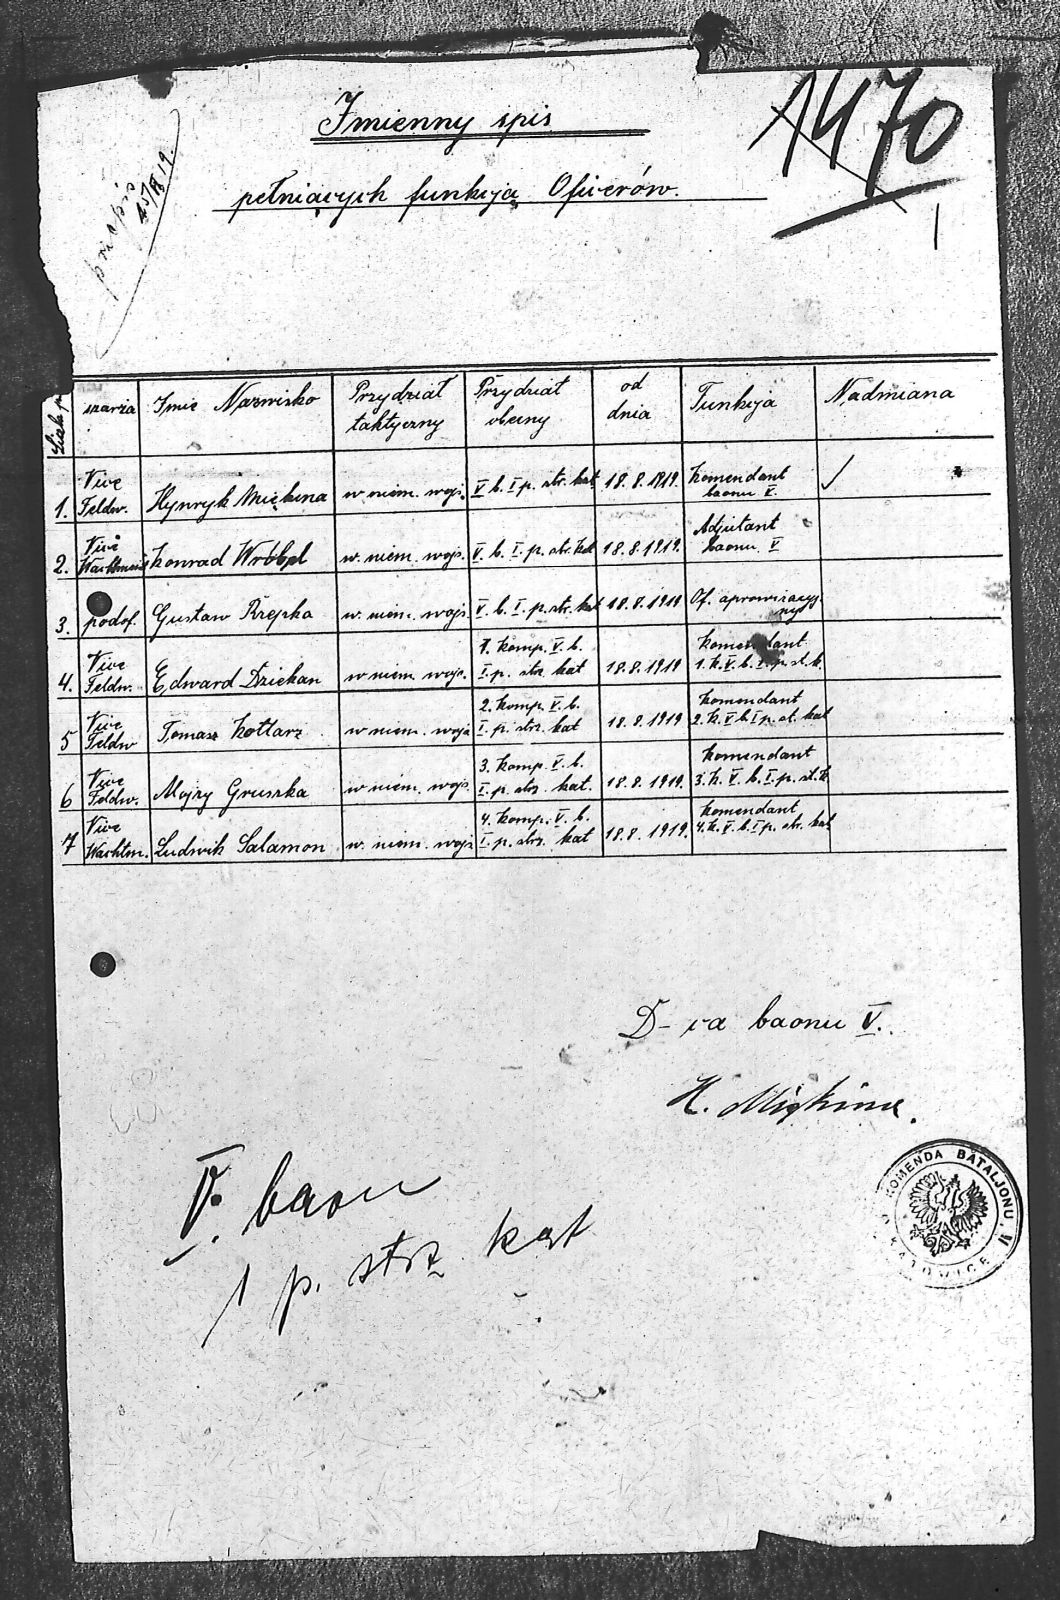 Imienny spis
pełniących funkcją Oficerów.
1470
1
szarża Imie Nazwisko Przydział taktyczny Przydział obecny od dnia Funkcja Nadmiana
1. Vice Feldw. Hynryk Miękina w niem. wojs. V b. I p. str. kat 18.8.1919. Komendant baonu V.
2. Vice Konrad Wróbel w. niem. wojs. V. b. I. p. str. kat 18.8.1919. Adjutant baonu V
3. podof. Gustaw Rzepka w. niem. wojs. V. b. I. p. str. kat 18.8.1919 Of. aprowizacyjny
4. Vice Feldw. Edward Dziekan w niem. wojs. 1. Komp. V. b. I. p. strz. kat 18.8.1919 Komendant 1. K. V. b. I. p. st. k.
5 Vice Feldw Tomasz Kotlarz w niem. wojs 2. Komp. V. b. I. p. strz. kat 18.8.1919 Komendant 2. K. V b I p. st. kat
6 Vice Feldw. Mojzy Gruszka w niem. wojs. 3. Komp. V. b. I. p. strz. kat. 18.8.1919. Komendant 3. K. V. b. I. p. st. k
7 Vice Wachtm. Ludwik Salamon w. niem. wojs 4. Komp. V. b. I. p. strz. kat 18.8.1919. Komendant 4. K. V. b. I p. str. kat
D-ca baonu V.
H. Miękina.
V. baon
1 p. strz kat
KOMENDA BATALJONU. V
KATOWICE